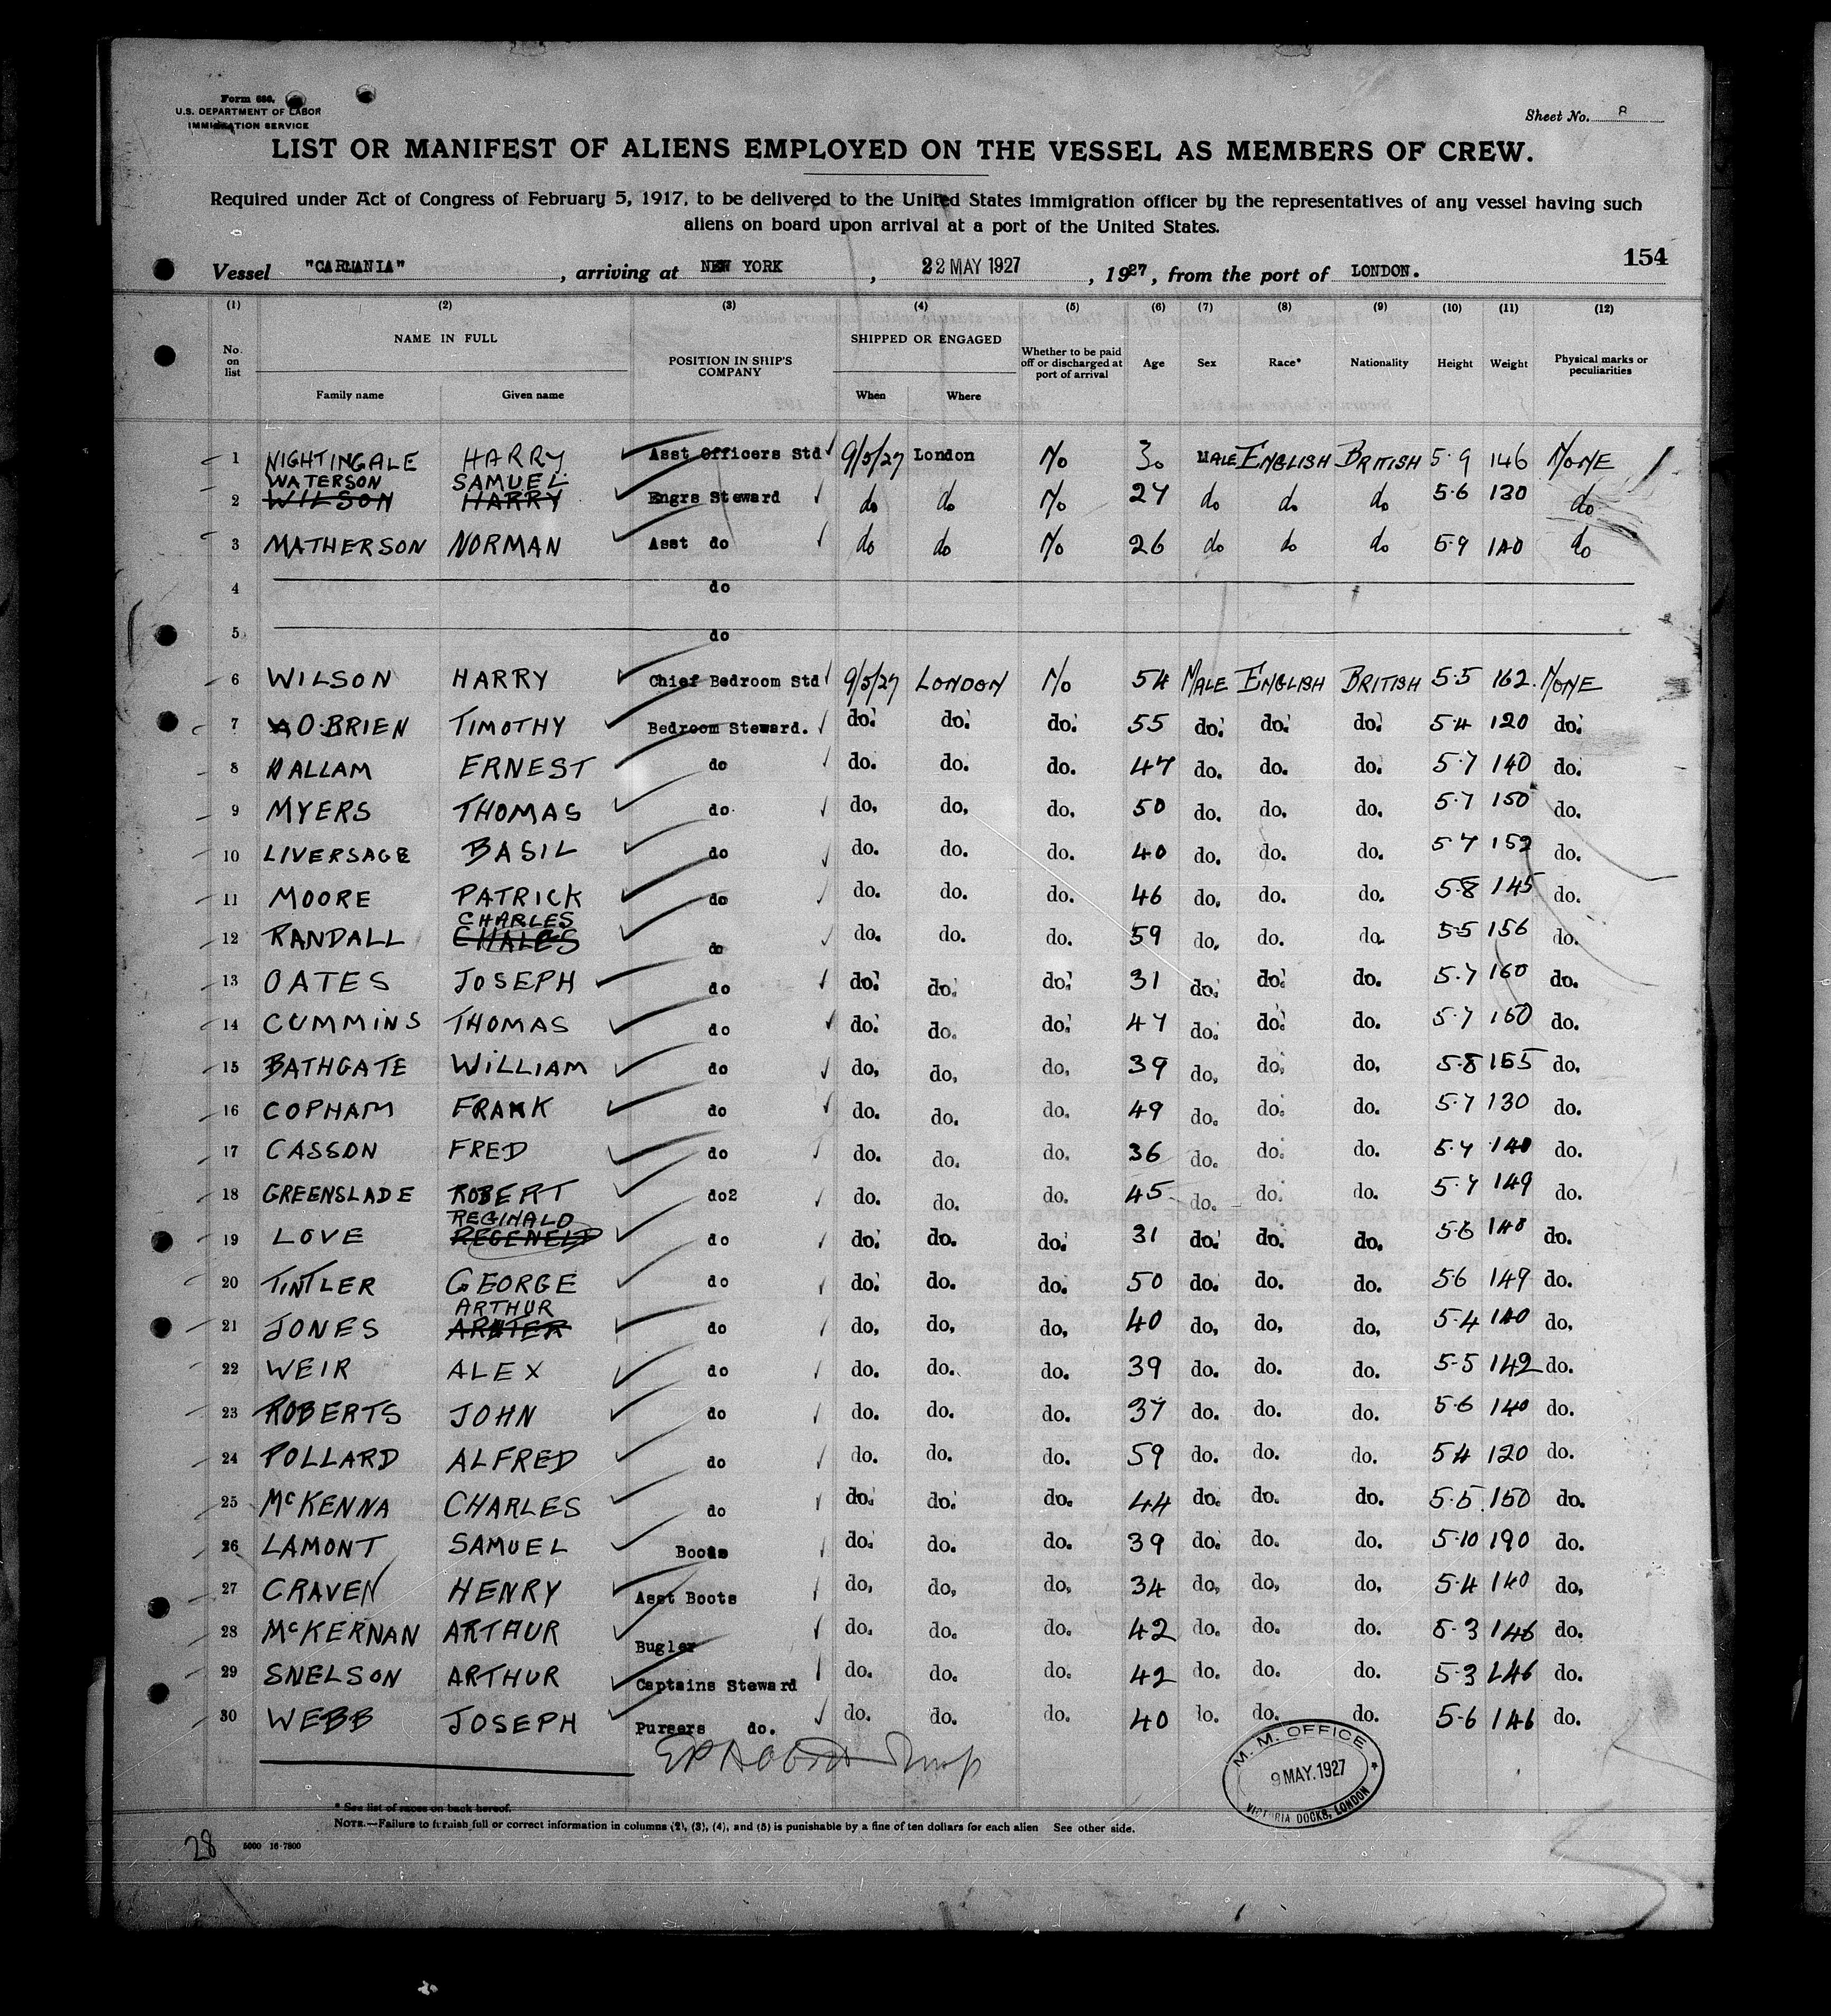 Form 686.
U.S. DEPARTMENT OF LABOR
IMMIGRATION SERVICE
Sheet No. 8
LIST OR MANIFEST OF ALIENS EMPLOYED ON THE VESSEL AS MEMBERS OF CREW.
Required under Act of Congress of February 5, 1917, to be delivered to the United States immigration officer by the representatives of any vessel having such
aliens on board upon arrival at a port of the United States.
154
Vessel "CARMANIA", arriving at NEW YORK, 22 MAY 1927, 1927, from the port of LONDON.
(1) (2) (3) (4) (5) (6) (7) (8) (9) (10) (11) (12)
No. on list NAME IN FULL Family name Given name POSITION IN SHIP'S COMPANY SHIPPED OR ENGAGED When Where Whether to be paid off or discharged at port of arrival Age Sex Race* Nationality Height Weight Physical marks or peculiarities
1 NIGHTINGALE HARRY Asst Officers Std 9/5/27 London No 30 MALE ENGLISH BRITISH 5.9 146 NONE
WATERSON SAMUEL
2 WILSON HARRY Engrs Steward do do No 27 do do do 5.6 130 do
3 MATHERSON NORMAN Asst do do do No 26 do do do 5.9 140 do
4 do
5 do
6 WILSON HARRY Chief Bedroom Std 9/5/27 LONDON No 54 MALE ENGLISH BRITISH 5.5 162. NONE
7 O.BRIEN TIMOTHY Bedroom Steward. do. do. do. 55 do. do. do. 5.4 120 do.
8 HALLAM ERNEST do do. do. do. 47 do. do. do. 5.7 140 do.
9 MYERS THOMAS do do. do. do. 50 do. do. do. 5.7 150 do.
10 LIVERSAGE BASIL do do. do. do. 40 do. do. do. 5 7 152 do.
11 MOORE PATRICK do do. do. do. 46 do. do. do. 5.8 145 do.
CHARLES
12 RANDALL CHALES do do. do. do. 59 do. do. do. 5.5 156 do.
13 OATES JOSEPH do do. do. do. 31 do. do. do. 5.7 160 do.
14 CUMMINS THOMAS do do. do. do. 47 do. do. do. 5.7 160 do.
15 BATHGATE WILLIAM do do. do. do. 39 do. do. do. 5.8 155 do.
16 COPHAM FRANK do do. do. do. 49 do. do. do. 5.7 130 do.
17 CASSON FRED do do. do. do. 36 do. do. do. 5.7 140 do.
18 GREENSLADE ROBERT do2 do. do. do. 45 do. do. do. 5.7 149 do.
REGINALD
19 LOVE do do. do. do. 31 do. do. do. 5.8 148 do.
20 TINTLER GEORGE do do. do. do. 50 do. do. do. 5.6 149 do.
ARTHUR
21 JONES do do. do. do. 40 do. do. do. 5.4 140 do.
22 WEIR ALEX do do. do. do. 39 do. do. do. 5.5 142 do.
23 ROBERTS JOHN do do. do. do. 37 do. do. do. 5.6 140 do.
24 POLLARD ALFRED do do. do. do. 59 do. do. do. 5.4 120 do.
25 McKENNA CHARLES do do. do. do. 44 do. do. do. 5.5 150 do.
26 LAMONT SAMUEL Boots do. do. do. 39 do. do. do. 5.10 190 do.
27 CRAVEN HENRY Asst Boots do. do. do. 34 do. do. do. 5.4 140 do.
28 McKERNAN ARTHUR Bugler do. do. do. 42 do. do. do. 5.3 146 do.
29 SNELSON ARTHUR Captains Steward do. do. do. 42 do. do. do. 5.3 146 do.
30 WEBB JOSEPH Pursers do. do. do. do. 40 do. do. do. 5.6 146 do.
M. M. OFFICE
9 MAY.1927
VICTORIA DOCKS, LONDON
* See list of races on back hereof.
NOTE.—Failure to furnish full or correct information in columns (2), (3), (4), and (5) is punishable by a fine of ten dollars for each alien See other side.
28
5000 16-7800